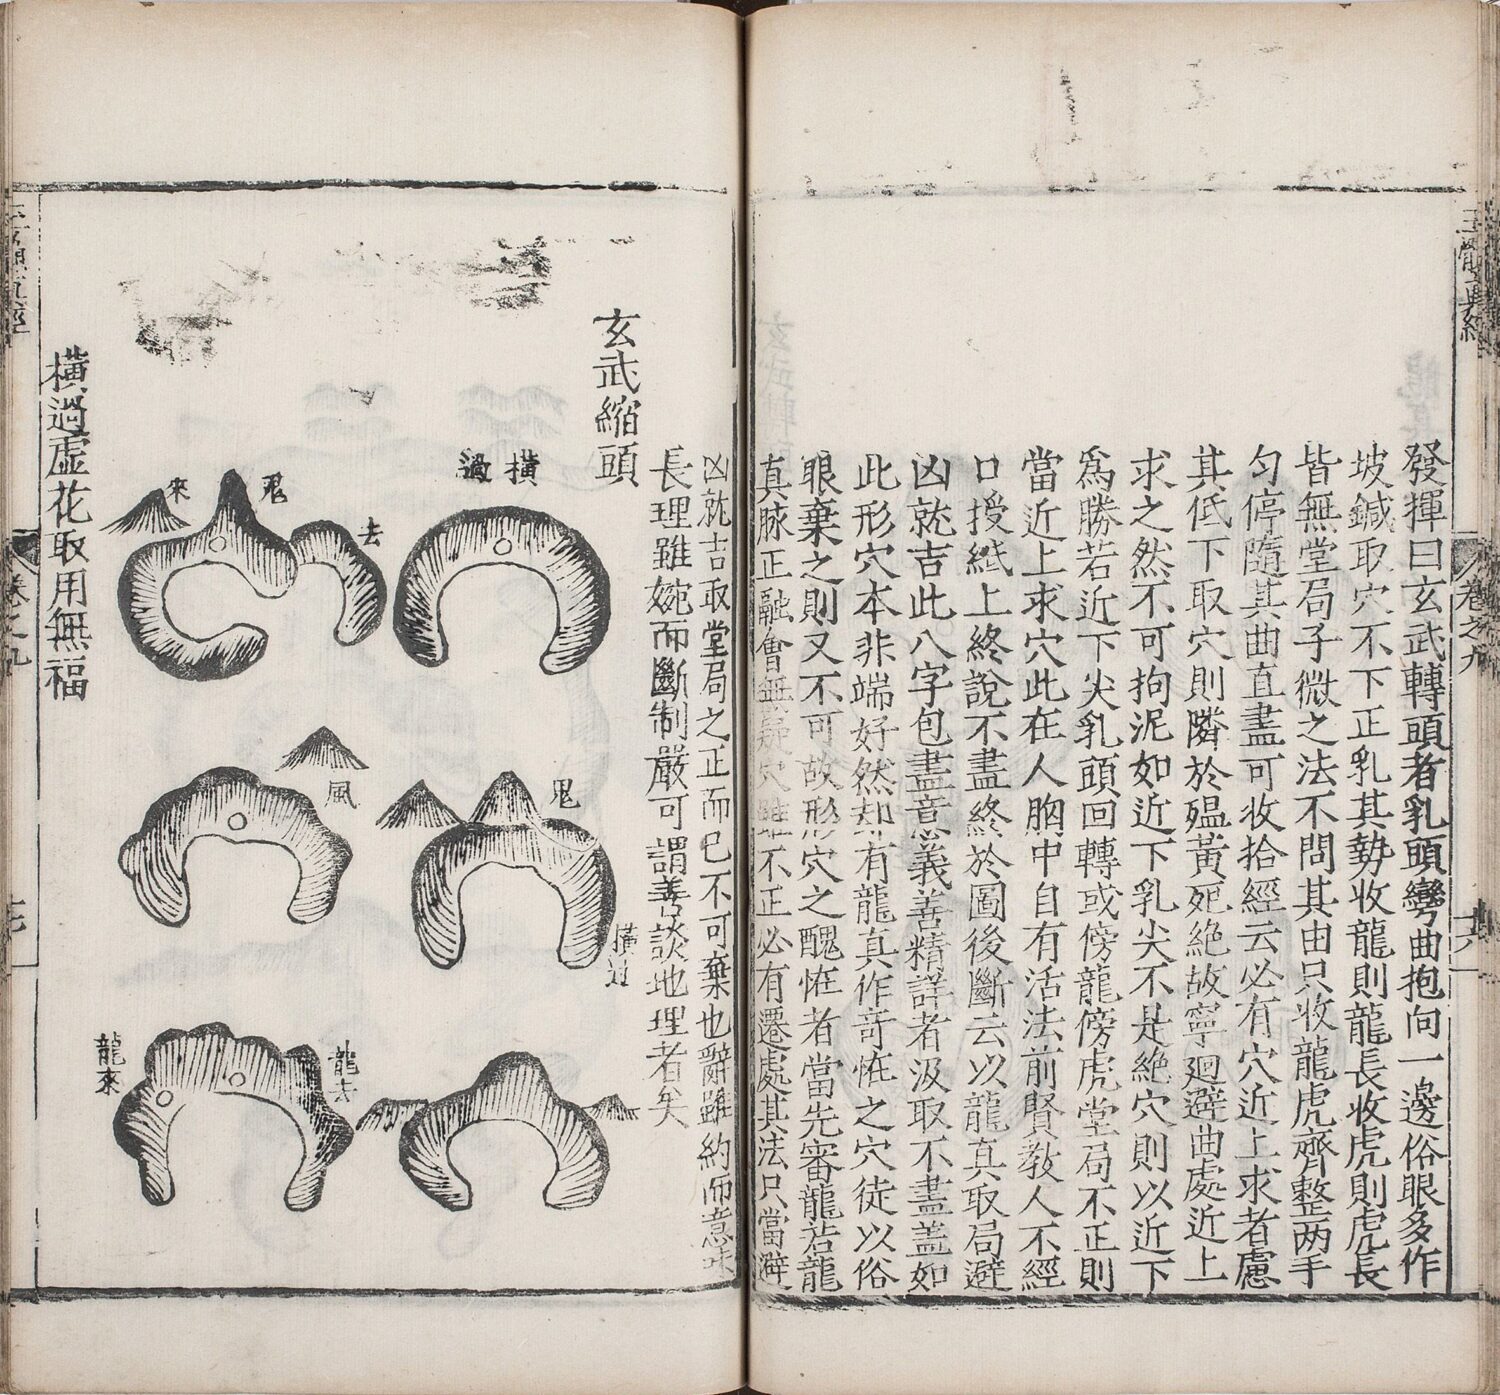 玉髓真經
卷之九
十六
發揮曰玄武轉頭者乳頭彎曲抱向一邊俗眼多作
坡鍼取穴不下正乳其勢收龍則龍長收虎則虎長
皆無堂局子微之法不問其由只收龍虎齊整兩手
勻停隨其曲直盡可收拾經云必有穴近上求者慮
其低下取穴則隣於殟黃死絕故寧廻避曲處近上
求之然不可拘泥如近下乳尖不是絶穴則以近下
爲勝若近下尖乳頭回轉或傍龍傍虎堂局不正則
當近上求穴此在人胸中自有活法前賢教人不經
口授紙上終說不盡終於圖後斷云以龍真取局避
凶就吉此八字包盡意義善精詳者汲取不盡盖如
此形穴本非端好然却有龍真作竒恠之穴徒以俗
眼棄之則又不可故形穴之醜恠者當先審龍若龍
真脉正融會無疑穴雖不正必有遷處其法只當避
凶就吉取堂局之正而已不可棄也辭雖約而意味
長理雖婉而斷制嚴可謂善談地理者矣
玄武縮頭
橫過
鬼
來
去
鬼
橫過
風
龍去
龍來
橫過虛花取用無福
卷之九